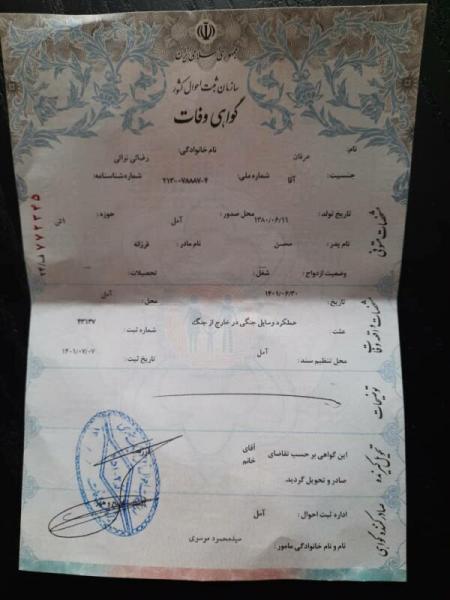 جمهوری اسلامی ایران
سازمان ثبت احوال کشور
گواهی وفات
نام: عرفان نام خانوادگی: رضائی نوائی
جنسیت: آقا شماره ملی: ۲۱۳-۰۷۸۸۸۷-۴ شماره شناسنامه:
تاریخ تولد: ۱۳۸۰/۰۶/۱۱ محل صدور: آمل حوزه: ۱آمل
نام پدر: محسن نام مادر: فرزانه
وضعیت ازدواج: شغل: تحصیلات:
مشخصات متوفی
تاریخ: ۱۴۰۱/۰۶/۳۰ محل: آمل
علت: عملکرد وسایل جنگی در خارج از جنگ شماره ثبت: ۴۳۱۳۷
محل تنظیم سند: آمل تاریخ ثبت: ۱۴۰۱/۰۷/۰۷
مشخصات واقعه وفات
توضیحات
این گواهی بر حسب تقاضای آقای
خانم
صادر و تحویل گردید.
تحویل گیرنده
اداره ثبت احوال: آمل
نام و نام خانوادگی مامور: سیدمحمود موسوی
صادرکننده گواهی
۷۷۲۳۴۵